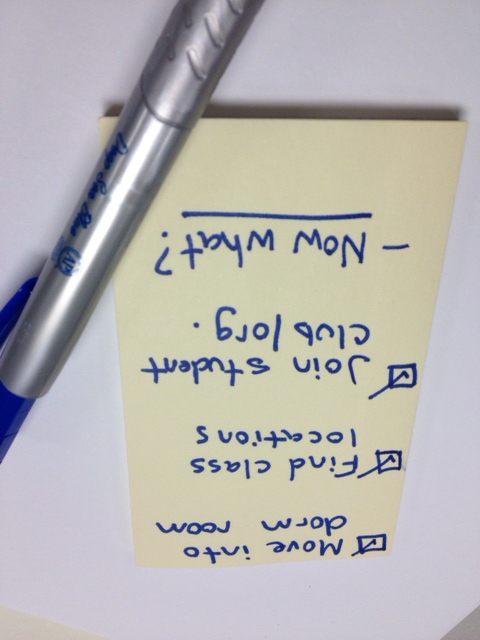 ☑ Move into
dorm room
☑ Find class
locations
☑ Join student
club/org.
- Now what?
Deep Sea Blue